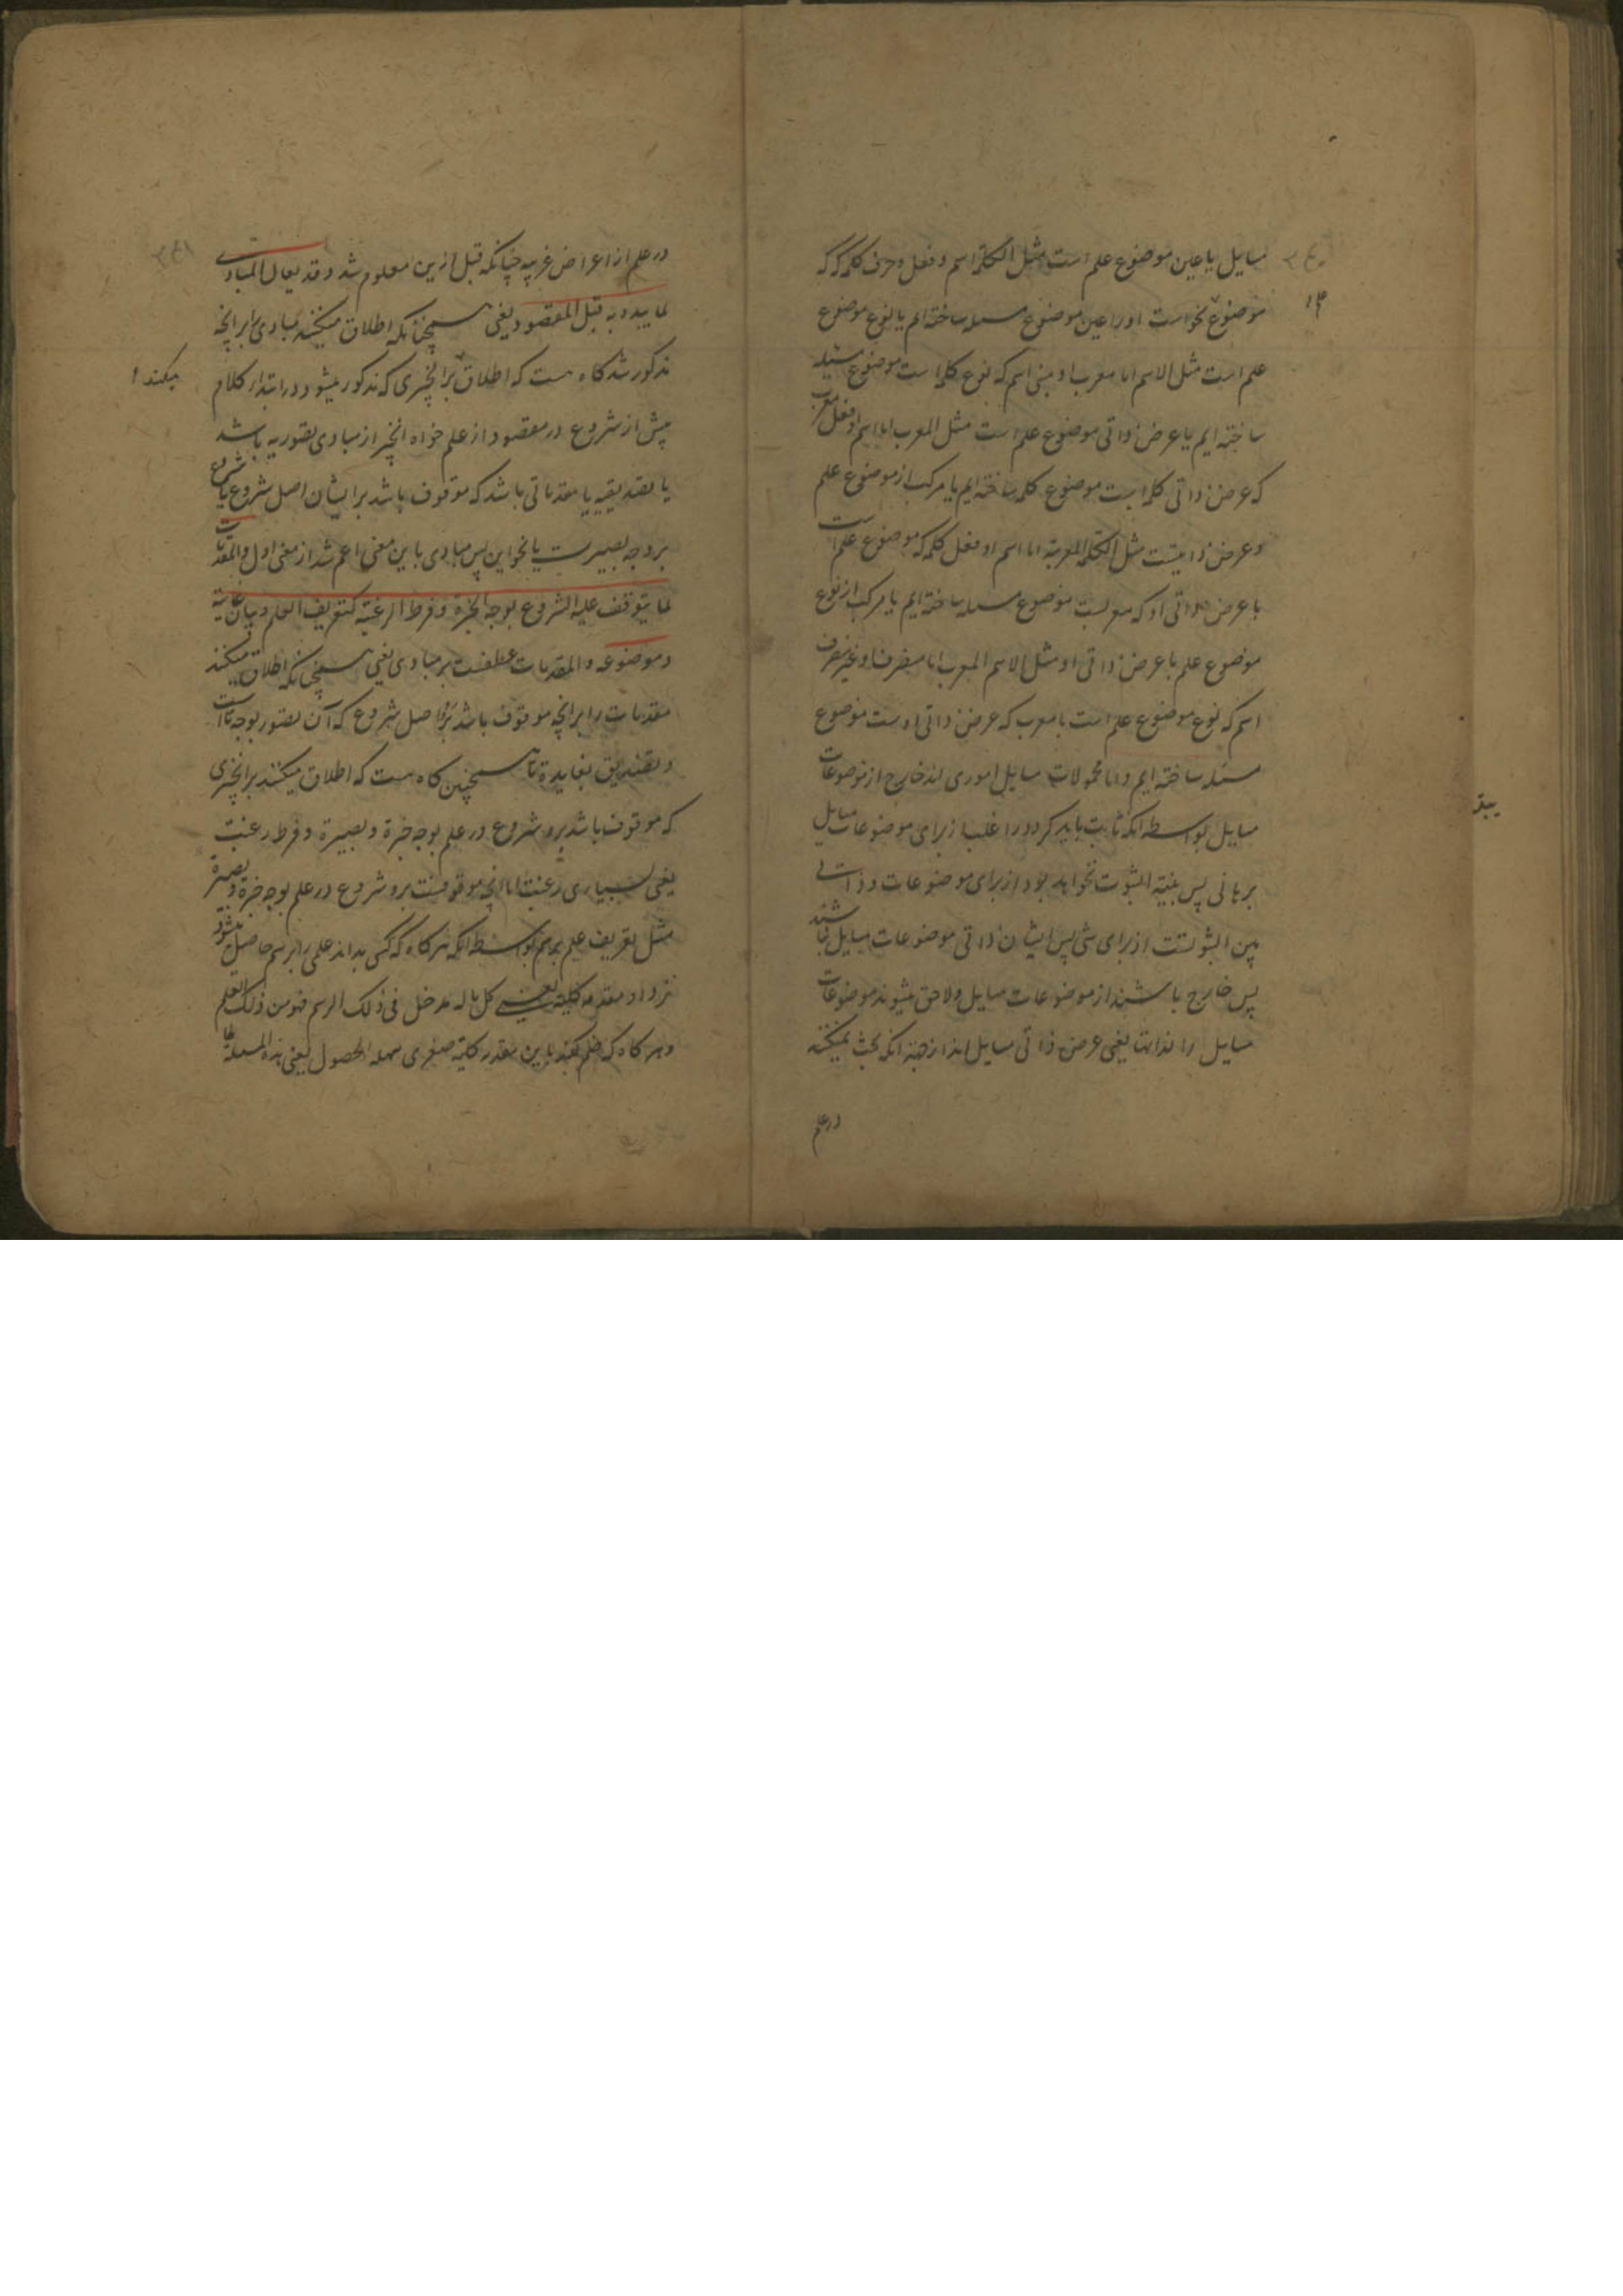 مسایل یا عین موضوع علم است مثل الکلمة اسم و فعل و حرف کلمه که
موضوع نحو است او را عین موضوع مسله ساخته ایم یا نوع موضوع
علم است مثل الاسم اما معرب او مبنی اسم که نوع کلمه است موضوع مسئله
ساخته ایم یا عرض ذاتی موضوع علم است مثل المعرب اما اسم او فعل معرب
که عرض ذاتی کلمه است موضوع کلمه ساخته ایم یا مرکب از موضوع علم
و عرض ذاتیست مثل الکلمة المعربة اما اسم او فعل کلمه که موضوع علم است
با عرض ذاتی او که معربست موضوع مسله ساخته ایم یا مرکب از نوع
موضوع علم با عرض ذاتی او مثل الاسم المعرب اما منصرف او غیر منصرف
اسم که نوع موضوع علم است با معرب که عرض ذاتی اوست موضوع
مسئله ساخته ایم و اما محمولات مسایل اموری اند خارج از موضوعات
مسایل بواسطه انکه ثابت باید کرد در اغلب از برای موضوعات مسایل
برهانی پس بینة الثبوت نخواهد بود از برای موضوعات و ذاتی
بین الثبوتست از برای شی پس ایشان ذاتی موضوعات مسایل نباشند
پس خارج باشند از موضوعات مسایل و لاحق میشوند موضوعات
مسایل را لذاتها یعنی عرض ذاتی مسایل اند از جهة انکه بحث نمیکنند
در علم
در علم از اعراض غریبه چنانکه قبل ازین معلوم شد و قد یقال المبادی
لما یبدء به قبل المقصود یعنی همچنانکه اطلاق میکنند مبادی را بر انچه
مذکور شد کاه هست که اطلاق بر انچیزی که مذکور میشود در ابتداء کلام
میکنند
پیش از شروع در مقصود از علم خواه انچیز از مبادی تصوریه باشد
یا تصدیقیه یا مقدماتی باشد که موقوف باشد بر ایشان اصل شروع یا شروع
بر وجه بصیرت یا نحو این پس مبادی باین معنی اعم شد از معنی اول و المقدمات
لما یتوقف علیه الشروع بوجه الخبرة و فرط الرغبة کتعریف العلم و بیان غایته
و موضوعه و المقدمات عطفست بر مبادی یعنی همچنانکه اطلاق میکنند
مقدمات را بر انچه موقوف باشد برو اصل شروع که آن تصور بوجه ما است
و تصدیق بفایدة ما همچنین کاه هست که اطلاق میکنند بر انچیزی
که موقوف باشد برو شروع در علم بوجه خبرة و بصیرة و فرط رغبت
یعنی بسیاری رغبت اما انچه موقوفست برو شروع در علم بوجه خبرة و بصیرة
مثل تعریف علم برسم بواسطه انکه هر کاه که کسی بداند علمی را برسم حاصل میشود
نزد او مقدمه کلیه یعنی کل ما له مدخل فی ذلک الرسم فهو من ذلک العلم
و هر کاه که ضم کند باین مقدمه کلیة صغری سهلة الحصول یعنی هذه المسئلة لها